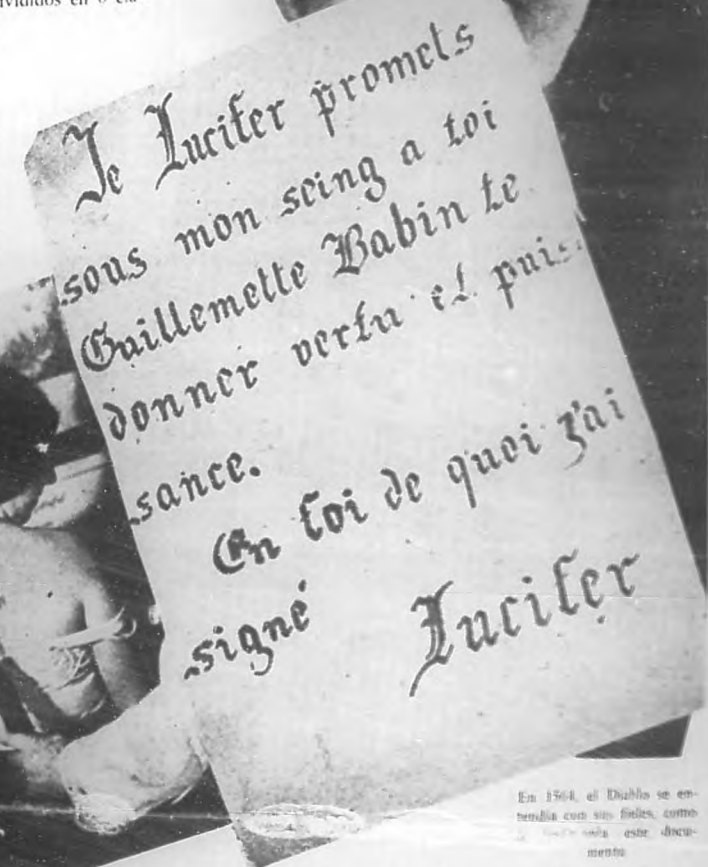 en 6
Je Lucifer promets
sous mon seing a toi
Guillemette Babin te
donner vertu et puis-
sance.
En foi de quoi j'ai
signé Lucifer
En 1564, el Diablo se en-
tendía con sus fieles, como
este docu-
mento